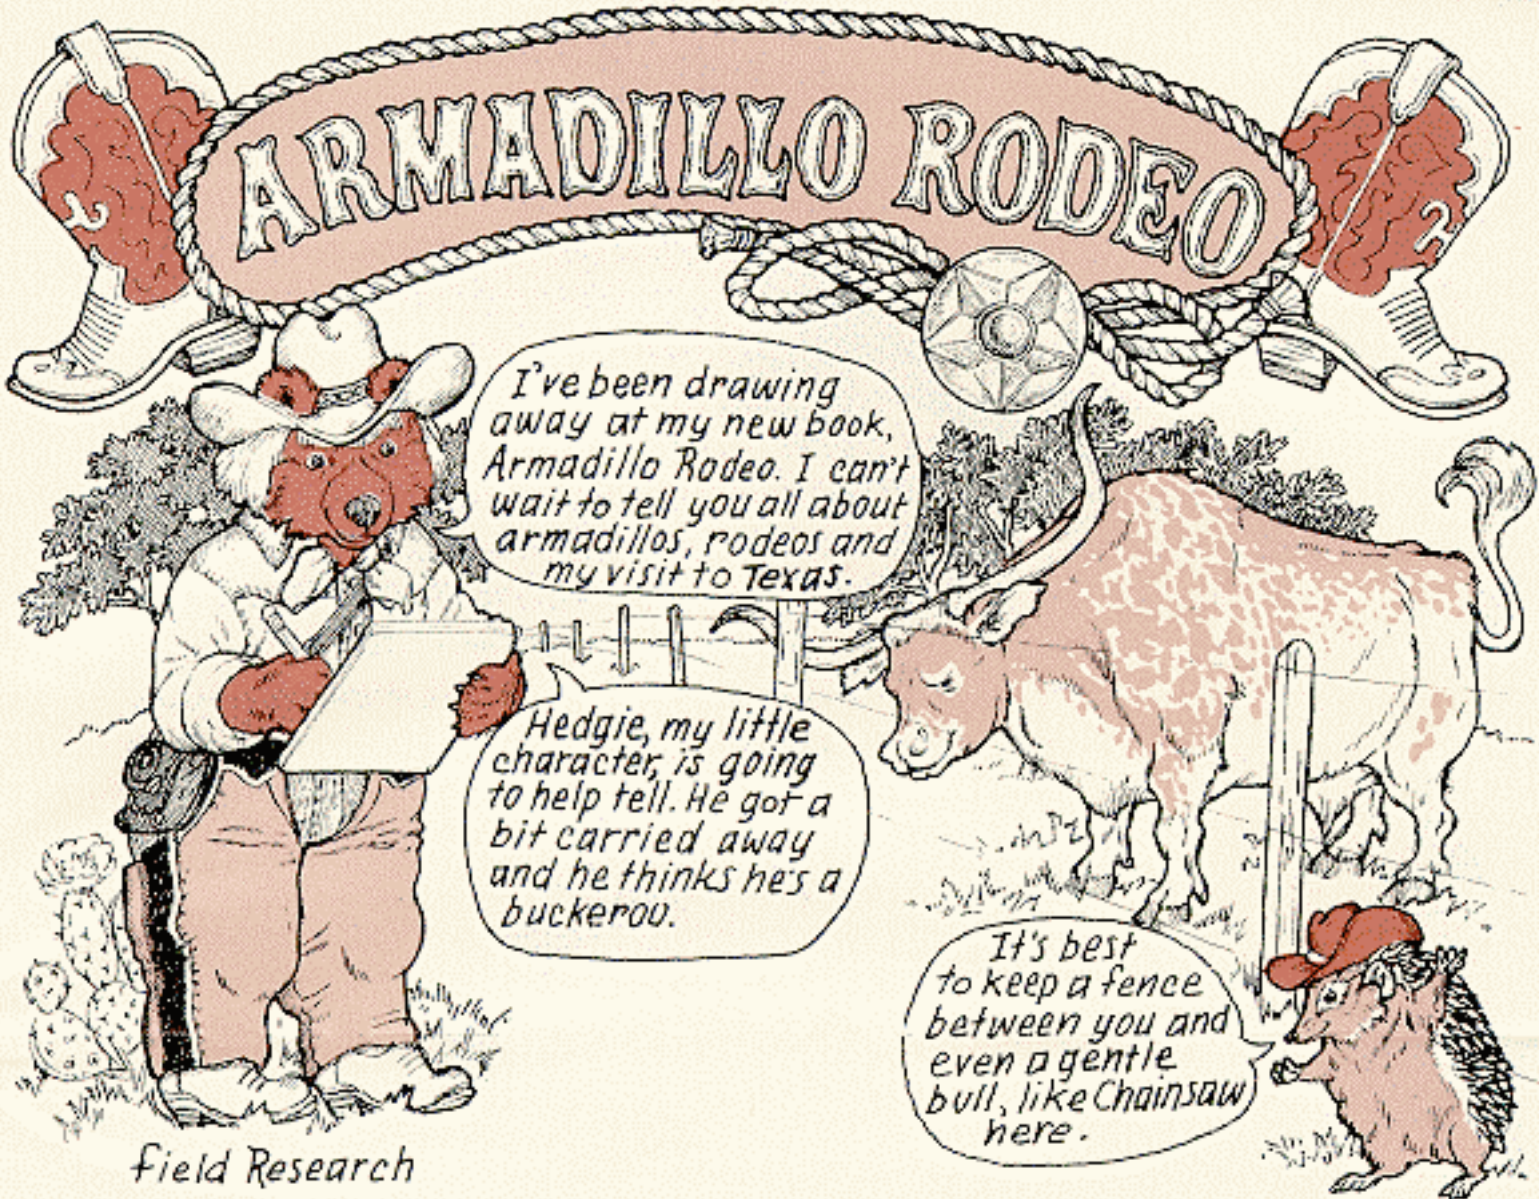 ARMADILLO RODEO
I've been drawing
away at my new book,
Armadillo Rodeo. I can't
wait to tell you all about
armadillos, rodeos and
my visit to Texas.
Hedgie, my little
character, is going
to help tell. He got a
bit carried away
and he thinks he's a
buckeroo.
It's best
to keep a fence
between you and
even a gentle
bull, like Chainsaw
here.
field Research